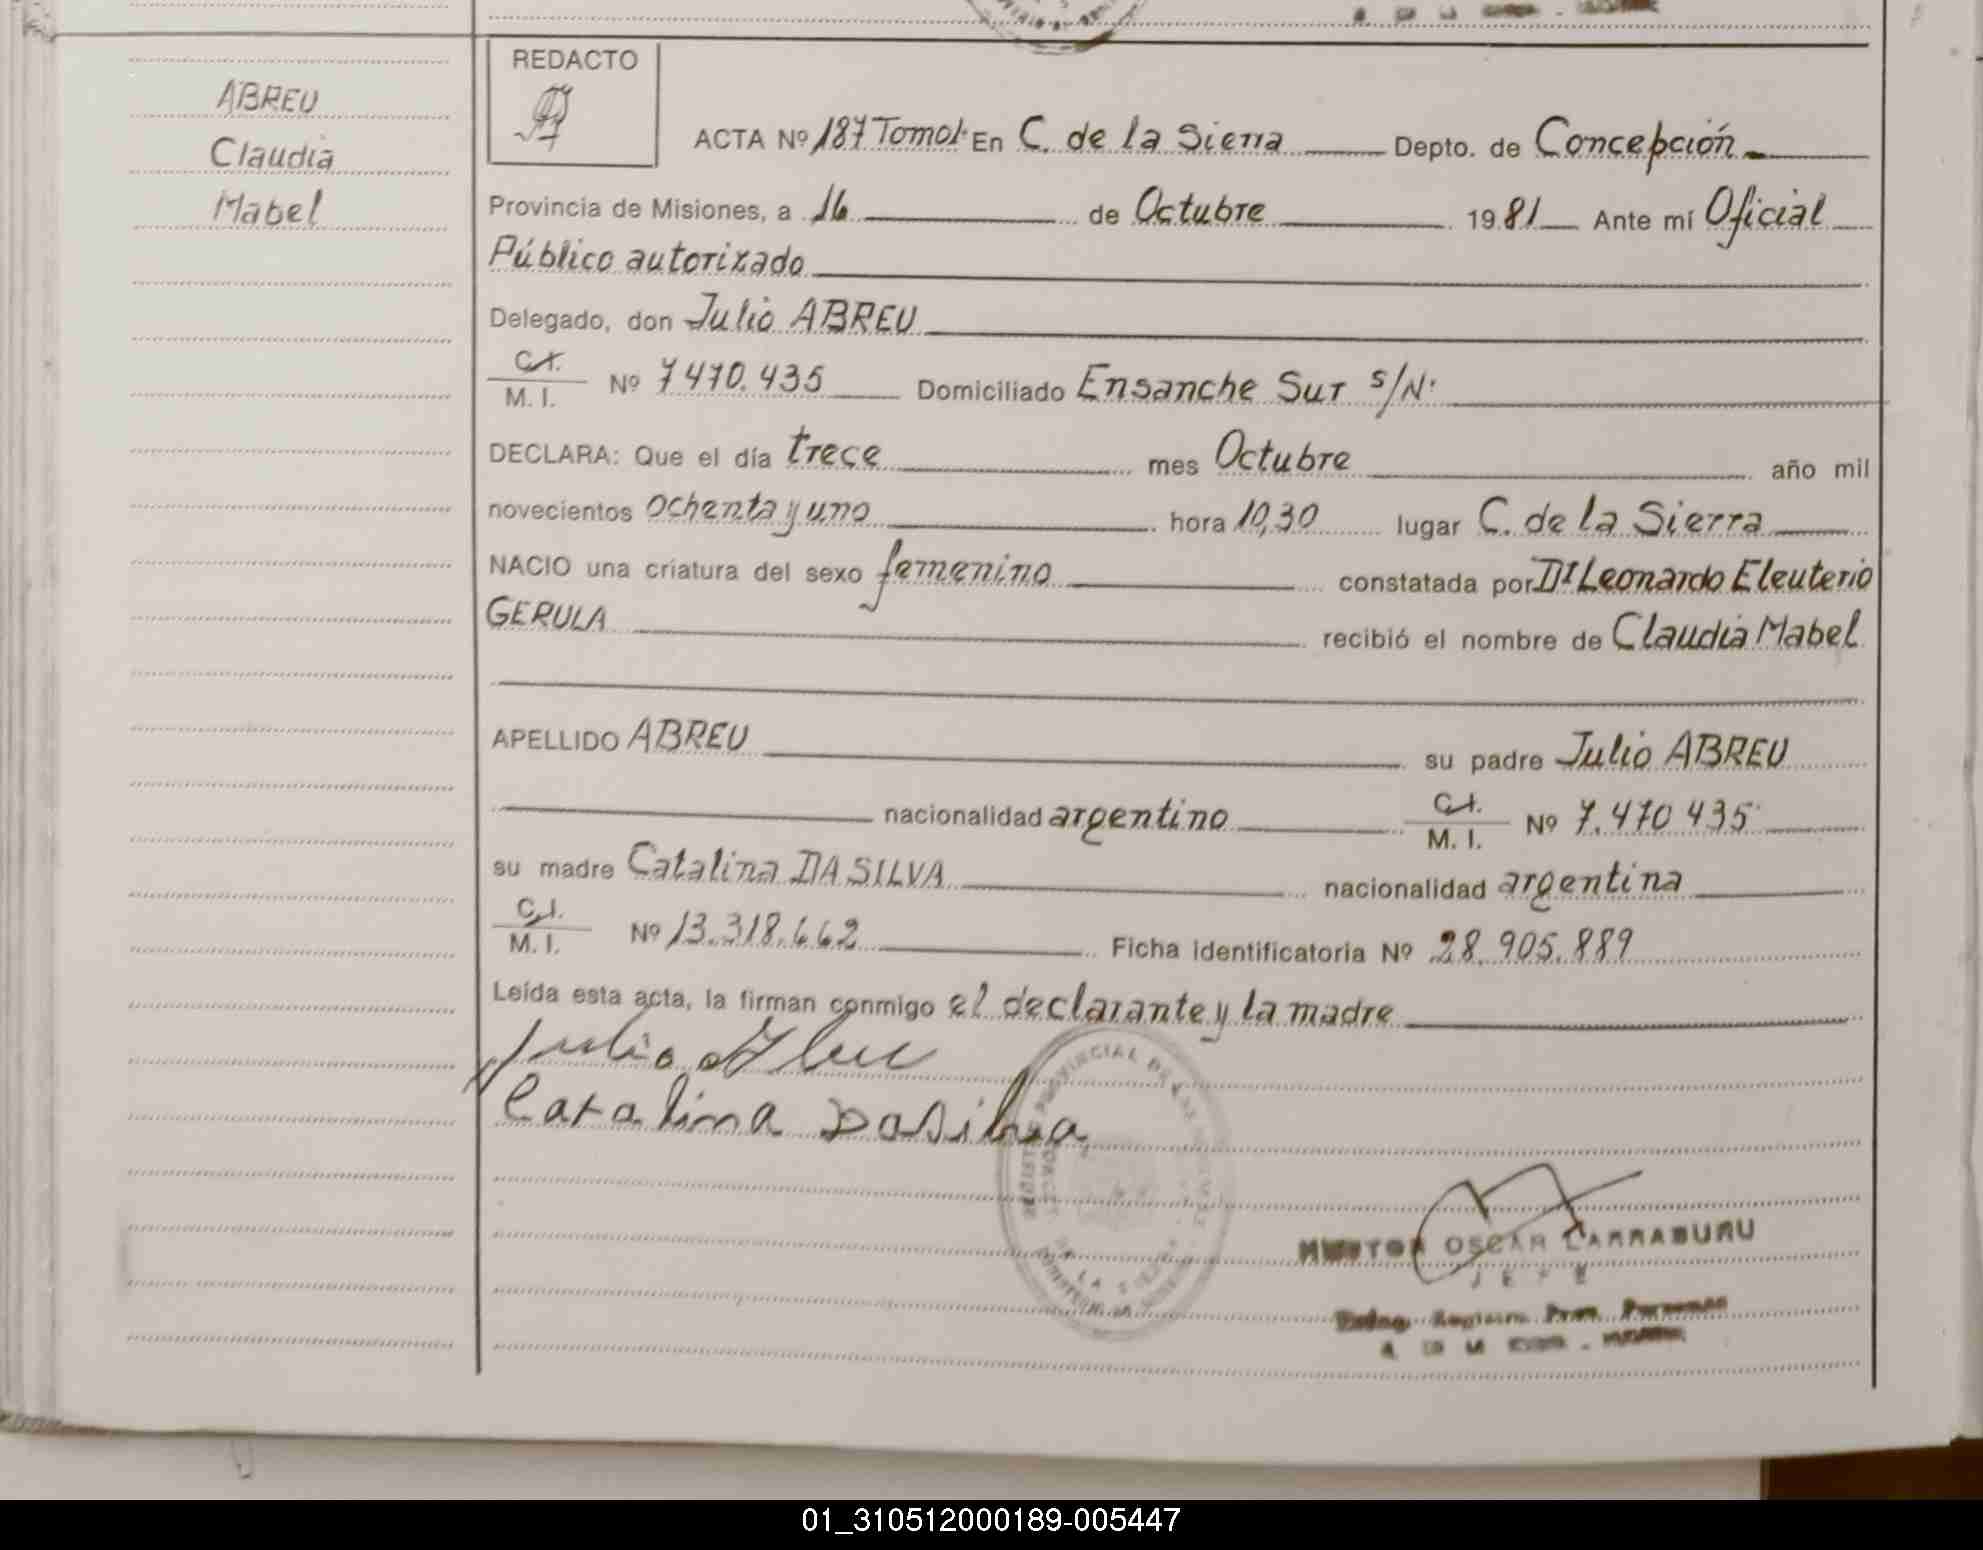 ABREU
Claudia
Mabel
REDACTO
ACTA Nº 187 Tomo I. En C. de la Sierra Depto. de Concepción
Provincia de Misiones, a 16 de Octubre 1981 Ante mí Oficial
Público autorizado
Delegado, don Julio ABREU
C.I.
M. I. Nº 7470.435 Domiciliado Ensanche Sur s/Nº
DECLARA: Que el día trece mes Octubre año mil
novecientos ochenta y uno hora 10,30 lugar C. de la Sierra
NACIO una criatura del sexo femenino constatada por Dr Leonardo Eleuterio
GERULA recibió el nombre de Claudia Mabel
APELLIDO ABREU su padre Julio ABREU
nacionalidad argentino C.I. M. I. Nº 7.470 435
su madre Catalina DA SILVA nacionalidad argentina
C.I.
M. I. Nº 13.318.662 Ficha identificatoria Nº 28.905.889
Leída esta acta, la firman conmigo el declarante y la madre
Julio Abreu
Catalina Dasilva
OSCAR LARRABURU
JEFE
01_310512000189-005447